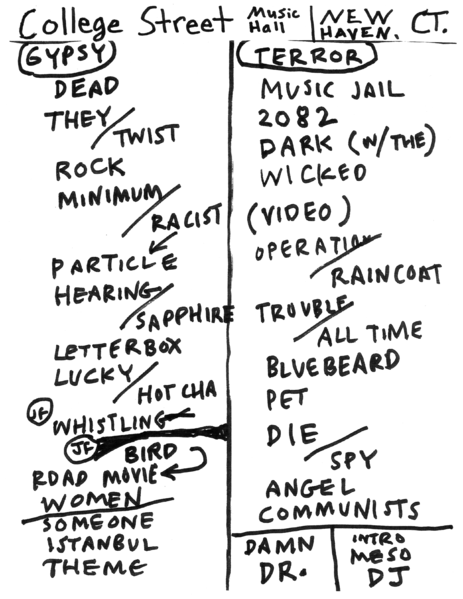 College Street Music Hall | NEW HAVEN, CT.
GYPSY
DEAD
THEY / TWIST
ROCK
MINIMUM / RACIST
PARTICLE
HEARING / SAPPHIRE
LETTERBOX
LUCKY / HOT CHA
JF WHISTLING
JF BIRD
ROAD MOVIE
WOMEN
SOMEONE
ISTANBUL
THEME
TERROR
MUSIC JAIL
2082
DARK (W/THE)
WICKED
(VIDEO)
OPERATION / RAINCOAT
TROUBLE / ALL TIME
BLUEBEARD
PET
DIE / SPY
ANGEL
COMMUNISTS
DAMN
DR.
INTRO
MESO
DJ